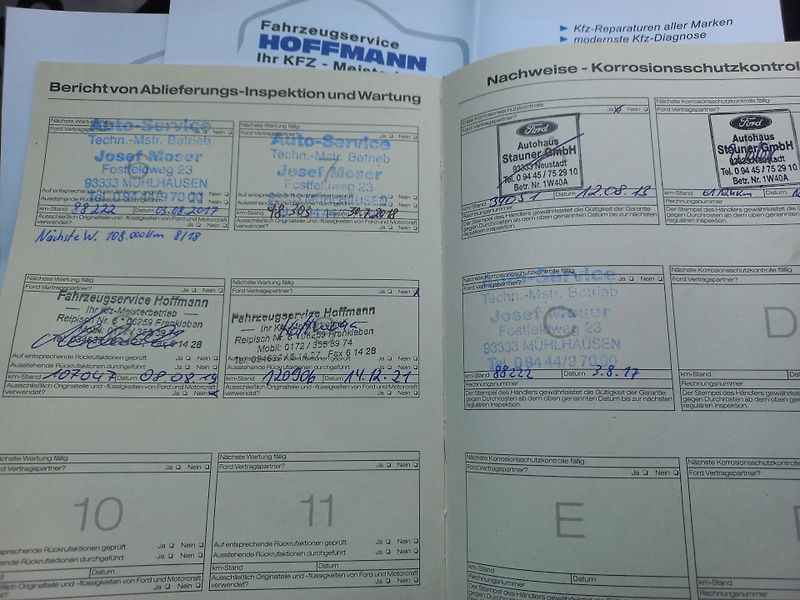 Fahrzeugservice
HOFFMANN
Ihr KFZ - Meister
Kfz-Reparaturen aller Marken
modernste Kfz-Diagnose
Bericht von Ablieferungs-Inspektion und Wartung
Nächste Wartung fällig
Ford Vertragspartner? Ja Nein
Auto-Service
Techn.-Mstr. Betrieb
Josef Moser
Fostfeldweg 23
93333 MÜHLHAUSEN
km-Stand 88222 Datum 03.08.2017
Ausschließlich Originalteile und -flüssigkeiten von Ford und Motorcraft
verwendet? Ja Nein
Nächste W. 108.000km 8/18
Nächste Wartung fällig
Ford Vertragspartner? Ja Nein
Auto-Service
Techn.-Mstr. Betrieb
Josef Moser
Fostfeldweg 23
93333 MÜHLHAUSEN
km-Stand 98.303 Datum
Ausschließlich Originalteile und -flüssigkeiten von Ford und Motorcraft
verwendet? Ja Nein
Nächste Wartung fällig
Ford Vertragspartner? Ja Nein
Fahrzeugservice Hoffmann
Ihr Kfz-Meisterbetrieb
Reipisch Nr. 6 * 06259 Frankleben
Auf entsprechende Rückrufaktionen geprüft Ja Nein
Ausstehende Rückrufaktionen durchgeführt Ja Nein
km-Stand 107047 Datum 08.08.19
Ausschließlich Originalteile und -flüssigkeiten von Ford und Motorcraft
verwendet? Ja Nein
Nächste Wartung fällig
Ford Vertragspartner? Ja Nein
Fahrzeugservice Hoffmann
Reipisch Nr. 6 * 06259 Frankleben
Mobil: 0172 / 355 89 74
Fax 6 14 28
Auf entsprechende Rückrufaktionen geprüft Ja Nein
Ausstehende Rückrufaktionen durchgeführt Ja Nein
km-Stand 120906 Datum 14.12.21
Ausschließlich Originalteile und -flüssigkeiten von Ford und Motorcraft
verwendet? Ja Nein
Nächste Wartung fällig
Ford Vertragspartner? Ja Nein
10
entsprechende Rückrufaktionen geprüft Ja Nein
Ausstehende Rückrufaktionen durchgeführt Ja Nein
Datum
Ausschließlich Originalteile und -flüssigkeiten von Ford und Motorcraft
verwendet? Ja Nein
Nächste Wartung fällig
Ford Vertragspartner? Ja Nein
11
Auf entsprechende Rückrufaktionen geprüft Ja Nein
Ausstehende Rückrufaktionen durchgeführt Ja Nein
km-Stand Datum
Ausschließlich Originalteile und -flüssigkeiten von Ford und Motorcraft
verwendet? Ja Nein
Nachweise - Korrosionsschutzkontrol
Korrosionsschutzkontrolle
Ford Vertragspartner? Ja Nein
Ford
Autohaus
Stauner GmbH
93333 Neustadt
Tel. 0 94 45 / 75 29 10
Betr. Nr. 1W40A
km-Stand Datum 12.08.13
Rechnungsnummer
Der Stempel des Händlers gewährleistet die Gültigkeit der Garantie
gegen Durchrosten ab dem oben genannten Datum bis zur nächsten
regulären Inspektion.
Nächste Korrosionsschutzkontrolle fällig
Ford Vertragspartner?
Ford
Autohaus
Stauner GmbH
93333 Neustadt
Tel. 0 94 45 / 75 29 10
Betr. Nr. 1W40A
km-Stand Datum
Rechnungsnummer
Der Stempel des Händlers gewährleistet
gegen Durchrosten ab dem oben genannten
regulären Inspektion.
Nächste Korrosionsschutzkontrolle fällig
Ford Vertragspartner? Ja Nein
C
Auto-Service
Techn.-Mstr. Betrieb
Josef Moser
Fostfeldweg 23
93333 MÜHLHAUSEN
Tel. 0 94 44/9 70 00
km-Stand 88222 Datum 3.8.17
Rechnungsnummer
Der Stempel des Händlers gewährleistet die Gültigkeit der Garantie
gegen Durchrosten ab dem oben genannten Datum bis zur nächsten
regulären Inspektion.
Nächste Korrosionsschutzkontrolle fällig
Ford Vertragspartner?
D
km-Stand Datum
Rechnungsnummer
Der Stempel des Händlers gewährleistet
gegen Durchrosten ab dem oben genannten
regulären Inspektion.
Nächste Korrosionsschutzkontrolle fällig
Ford Vertragspartner? Ja Nein
E
km-Stand Datum
Rechnungsnummer
Der Stempel des Händlers gewährleistet die Gültigkeit der Garantie
Nächste Korrosionsschutzkontrolle fällig
Ford Vertragspartner?
km-Stand
Rechnungsnummer